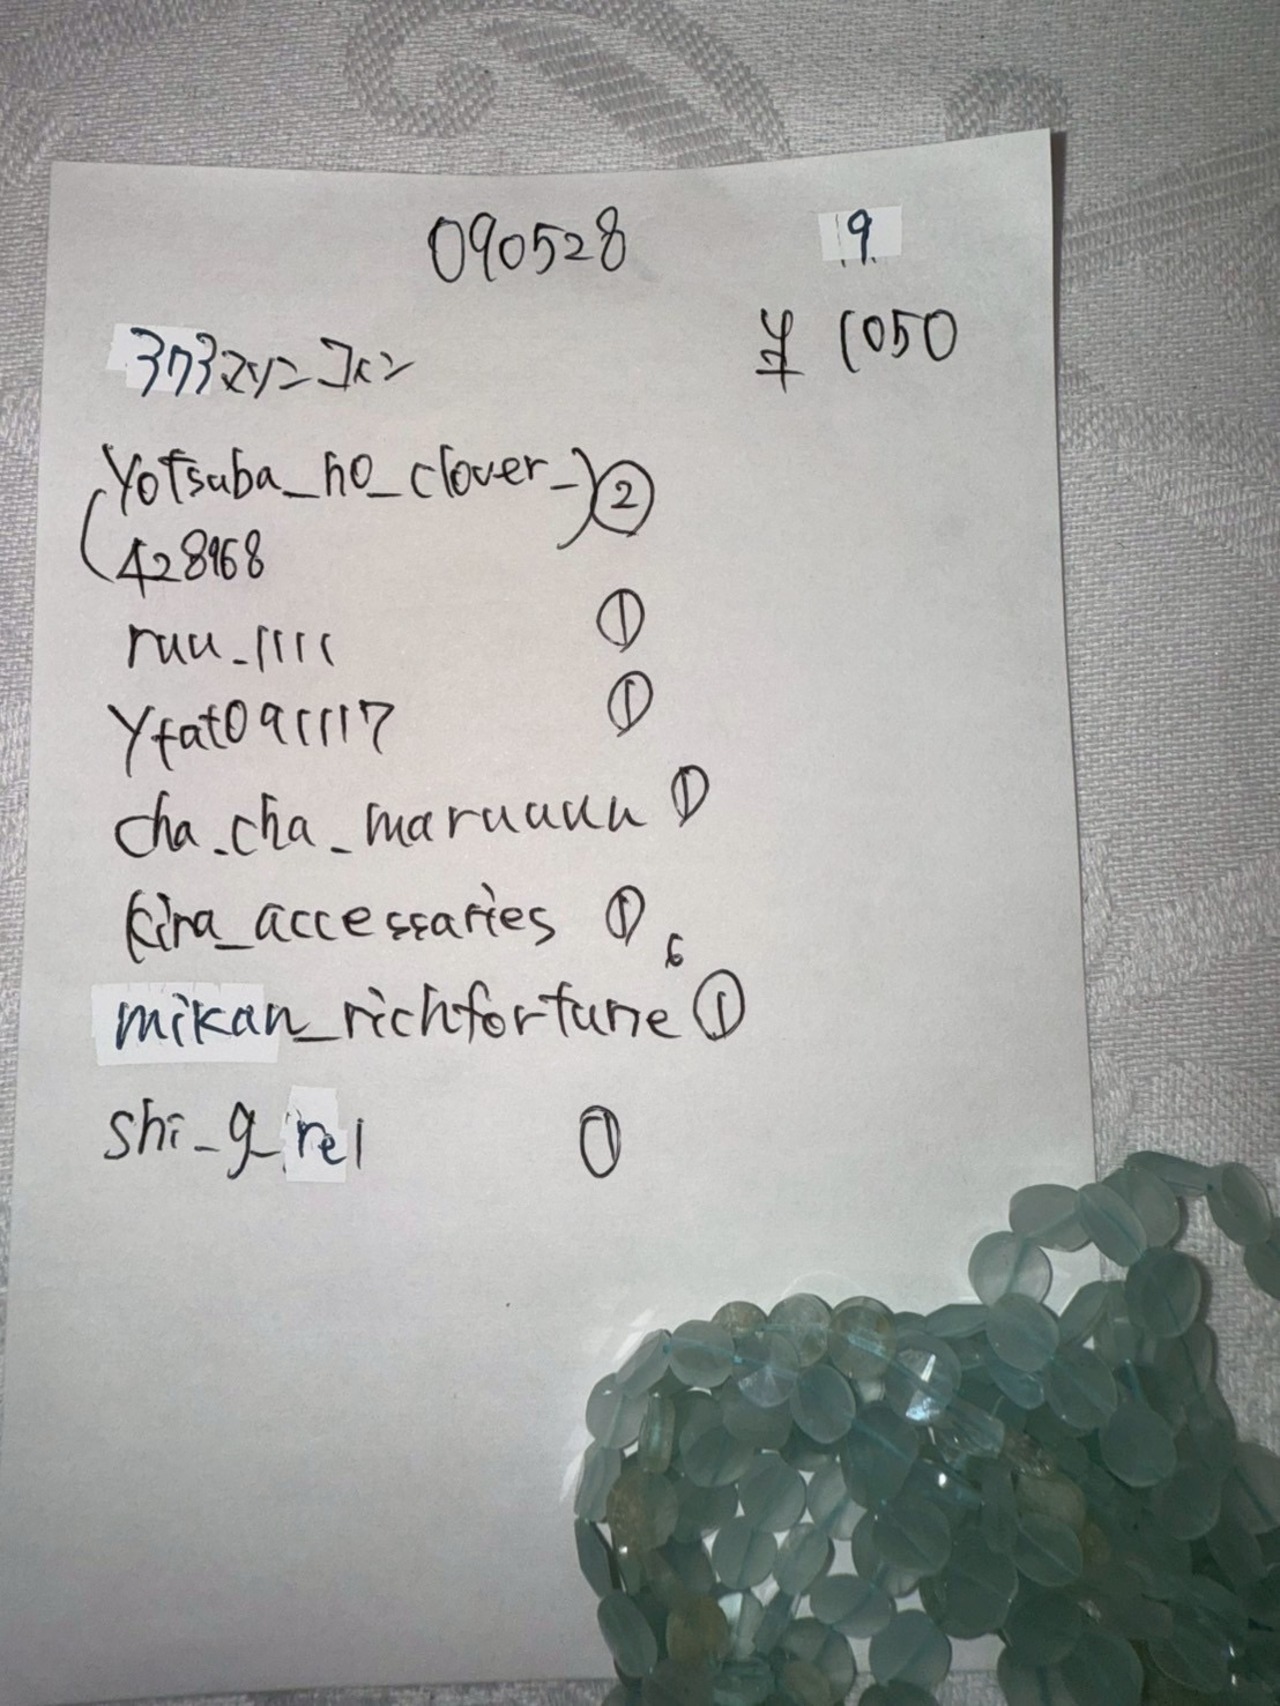 090528
9
ｱｸｱマリンコイン
¥ 1050
Yotsuba_no_clover_ ②
428968
ruu_1111 ①
Yfat091117 ①
cha.cha_maruuuu ①
kira_accessaries ①
6
mikan_richfortune ①
shi_g_re1 ①